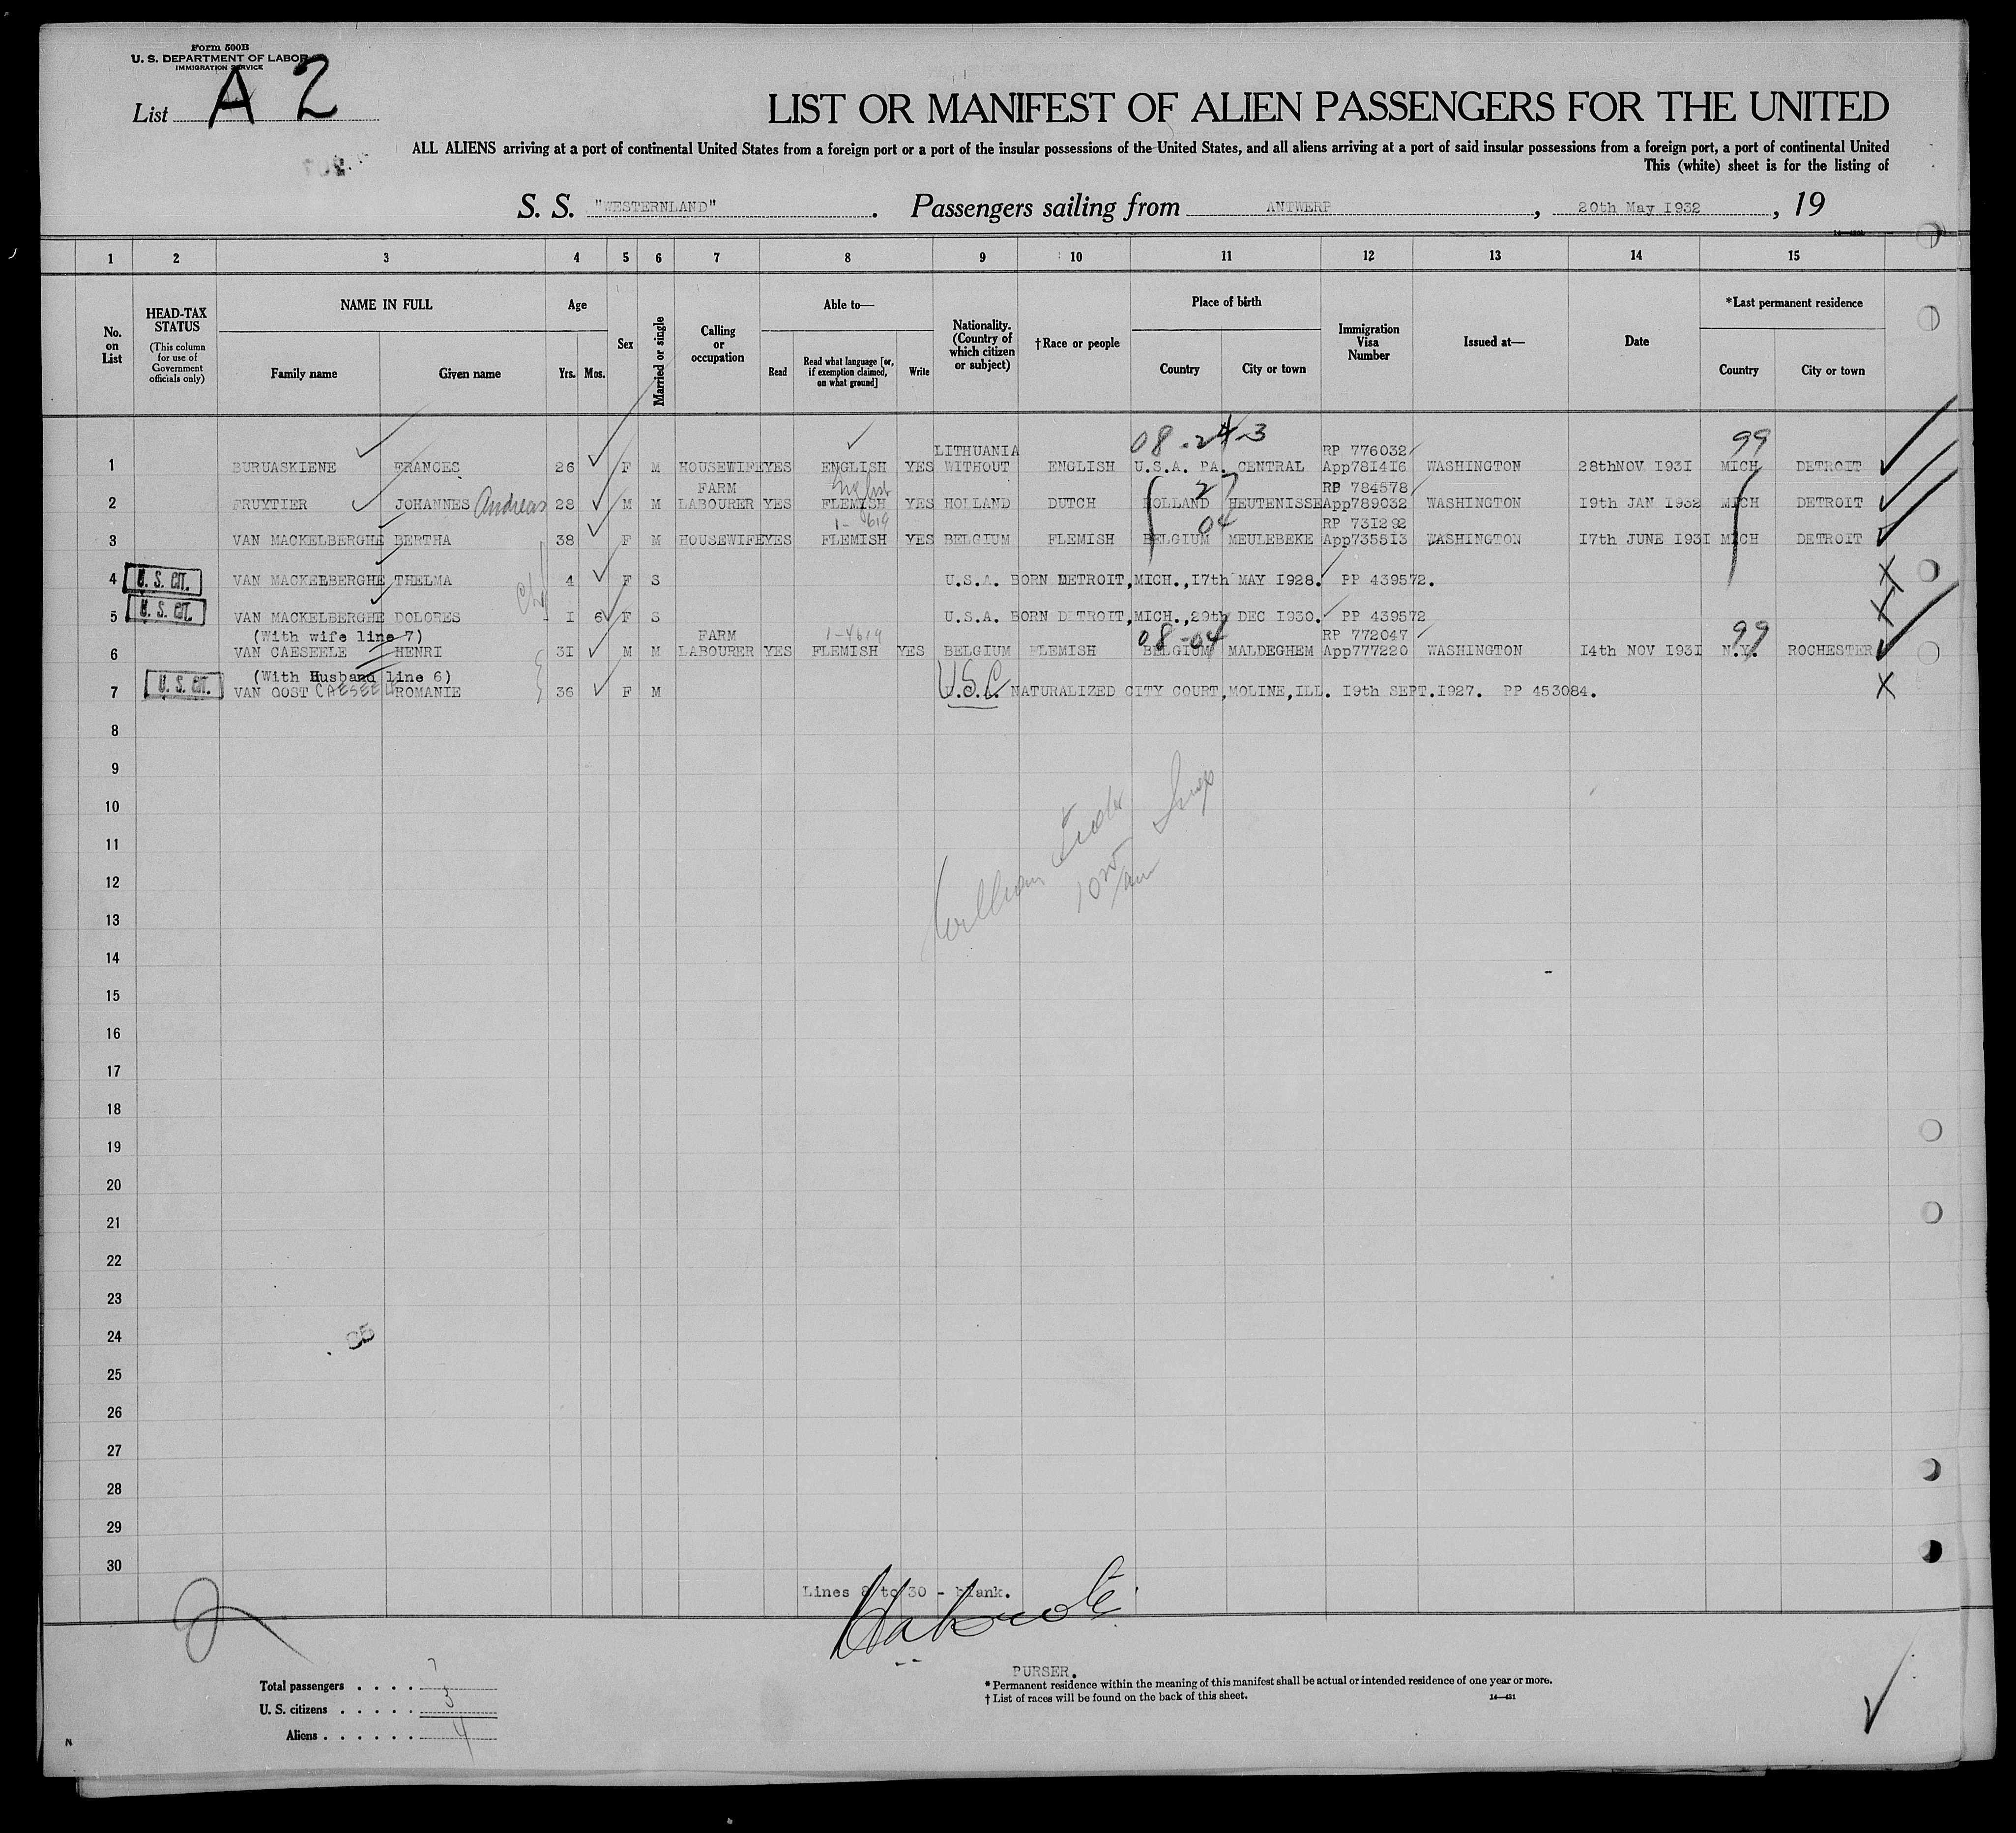 Form 500B
U. S. DEPARTMENT OF LABOR
IMMIGRATION SERVICE
List A 2
LIST OR MANIFEST OF ALIEN PASSENGERS FOR THE UNITED
ALL ALIENS arriving at a port of continental United States from a foreign port or a port of the insular possessions of the United States, and all aliens arriving at a port of said insular possessions from a foreign port, a port of continental United
This (white) sheet is for the listing of
S. S. "WESTERNLAND". Passengers sailing from ANTWERP, 20th May 1932, 19
1 2 3 4 5 6 7 8 9 10 11 12 13 14 15
No. on List
HEAD-TAX STATUS
(This column for use of Government officials only)
NAME IN FULL
Family name Given name
Age
Yrs. Mos.
Sex
Married or single
Calling or occupation
Able to—
Read Read what language [or, if exemption claimed, on what ground] Write
Nationality. (Country of which citizen or subject)
†Race or people
Place of birth
Country City or town
Immigration Visa Number
Issued at—
Date
*Last permanent residence
Country City or town
LITHUANIA 08-24-3 RP 776032 99
1 BURUASKIENE FRANCES 26 F M HOUSEWIFE YES ENGLISH YES WITHOUT ENGLISH U.S.A. PA. CENTRAL App781416 WASHINGTON 28thNOV 1931 MICH DETROIT
FARM English 27 RP 784578
2 FRUYTIER JOHANNES Andreas 28 M M LABOURER YES FLEMISH YES HOLLAND DUTCH HOLLAND HEUTENISSE App789032 WASHINGTON 19th JAN 1932 MICH DETROIT
1-619 04 RP 731292
3 VAN MACKELBERGHE BERTHA 38 F M HOUSEWIFE YES FLEMISH YES BELGIUM FLEMISH BELGIUM MEULEBEKE App735513 WASHINGTON 17th JUNE 1931 MICH DETROIT
4 U. S. CIT. VAN MACKELBERGHE THELMA 4 F S U.S.A. BORN DETROIT,MICH.,17th MAY 1928. PP 439572.
5 U. S. CIT. VAN MACKELBERGHE DOLORES 1 6 F S U.S.A. BORN DETROIT,MICH.,29th DEC 1930. PP 439572
(With wife line 7) FARM 1-4619 08-04 RP 772047 99
6 VAN CAESEELE HENRI 31 M M LABOURER YES FLEMISH YES BELGIUM FLEMISH BELGIUM MALDEGHEM App777220 WASHINGTON 14th NOV 1931 N.Y. ROCHESTER
(With Husband line 6) U.S.C
7 U. S. CIT. VAN OOST CAESEELE ROMANIE 36 F M U.S.A. NATURALIZED CITY COURT,MOLINE,ILL. 19th SEPT.1927. PP 453084.
8
9
10
11
12
13
14
15
16
17
18
19
20
21
22
23
24
25
26
27
28
29
30
Lines 8 to 30 - blank.
PURSER.
Total passengers . . . . 7
U. S. citizens . . . . . 3
Aliens . . . . . . 4
* Permanent residence within the meaning of this manifest shall be actual or intended residence of one year or more.
† List of races will be found on the back of this sheet.
14—431